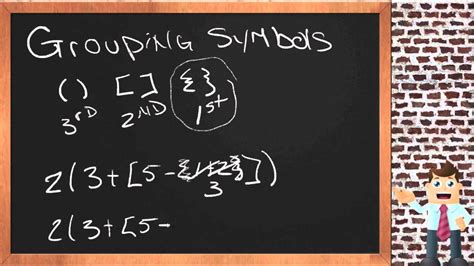 Grouping Symbols
( ) [ ] { }
3RD 2ND 1st
2(3+[5-{1+2}])
3
2(3+[5-